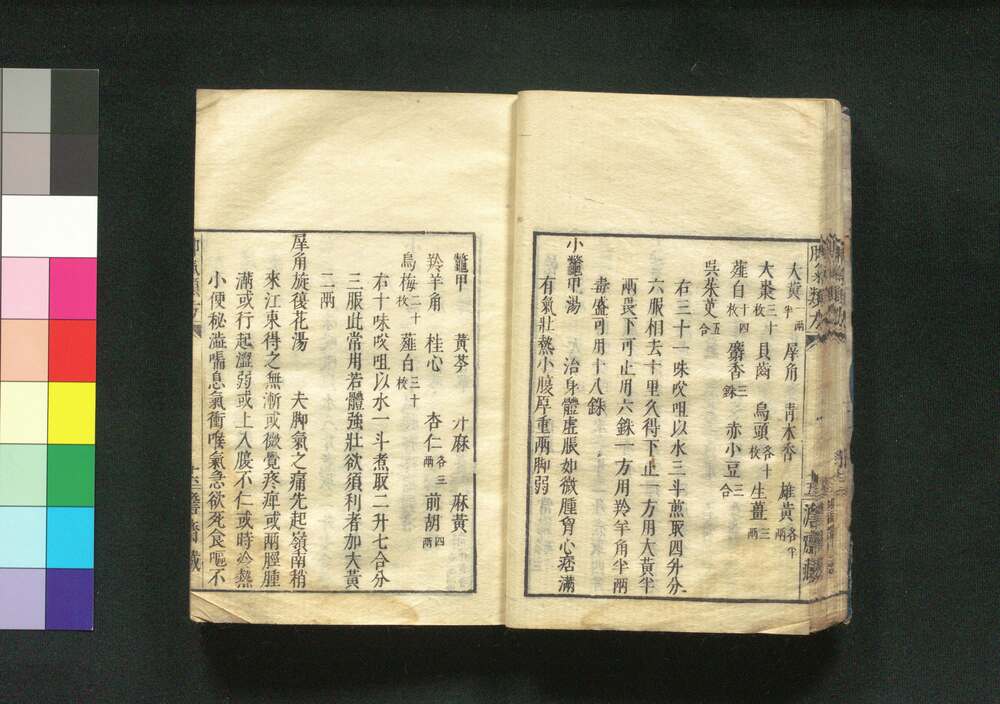 大黄一兩半 犀角 青木香 雄黃各半兩
大棗三十枚 貝齒 烏頭各十枚 生薑三兩
薤白十四枚 麝香三銖 赤小豆三合
呉茱萸五合
右三十一味㕮咀以水三斗煎取四升分
六服相去十里久得下止一方用大黃半
兩畏下可止用六銖一方用羚羊角半兩
毒盛可用十八銖
小鼈甲湯 治身體虛脹如微腫胷心痞滿
有氣壯熱小腹厚重兩脚弱
鼈甲 黃芩 升麻 麻黃
羚羊角 桂心 杏仁各三兩 前胡四兩
烏梅二十枚 薤白三十枚
右十味㕮咀以水一斗煮取二升七合分
三服此常用若體強壯欲須利者加大黃
二兩
犀角旋復花湯 夫脚氣之痛先起嶺南稍
來江東得之無漸或微覺疼痺或兩脛腫
滿或行起澀弱或上入腹不仁或時冷熱
小便秘澁喘息氣衝喉氣急欲死食嘔不